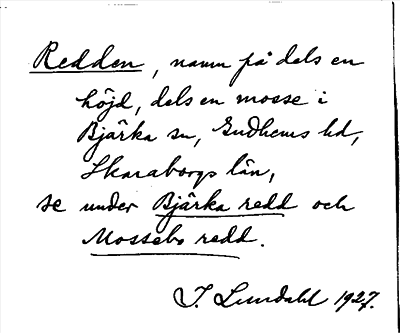 Redden, namn på dels en
höjd, dels en mosse i
Bjärka sn, Gudhems hd,
Skaraborgs län,
se under Bjärka redd och
Mossebo redd.
I. Lundahl 1927.